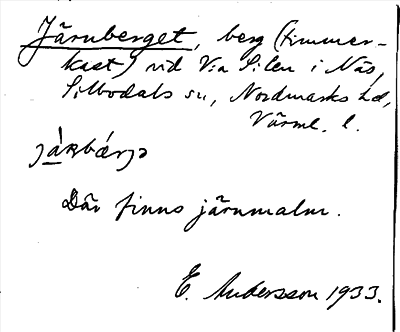 Järnberget, berg (timmer-
kast) vid V:a Silen i Näs,
Silbodals sn, Nordmarks hd,
Värml. l.
Där finns järnmalm.
E. Andersson 1933.